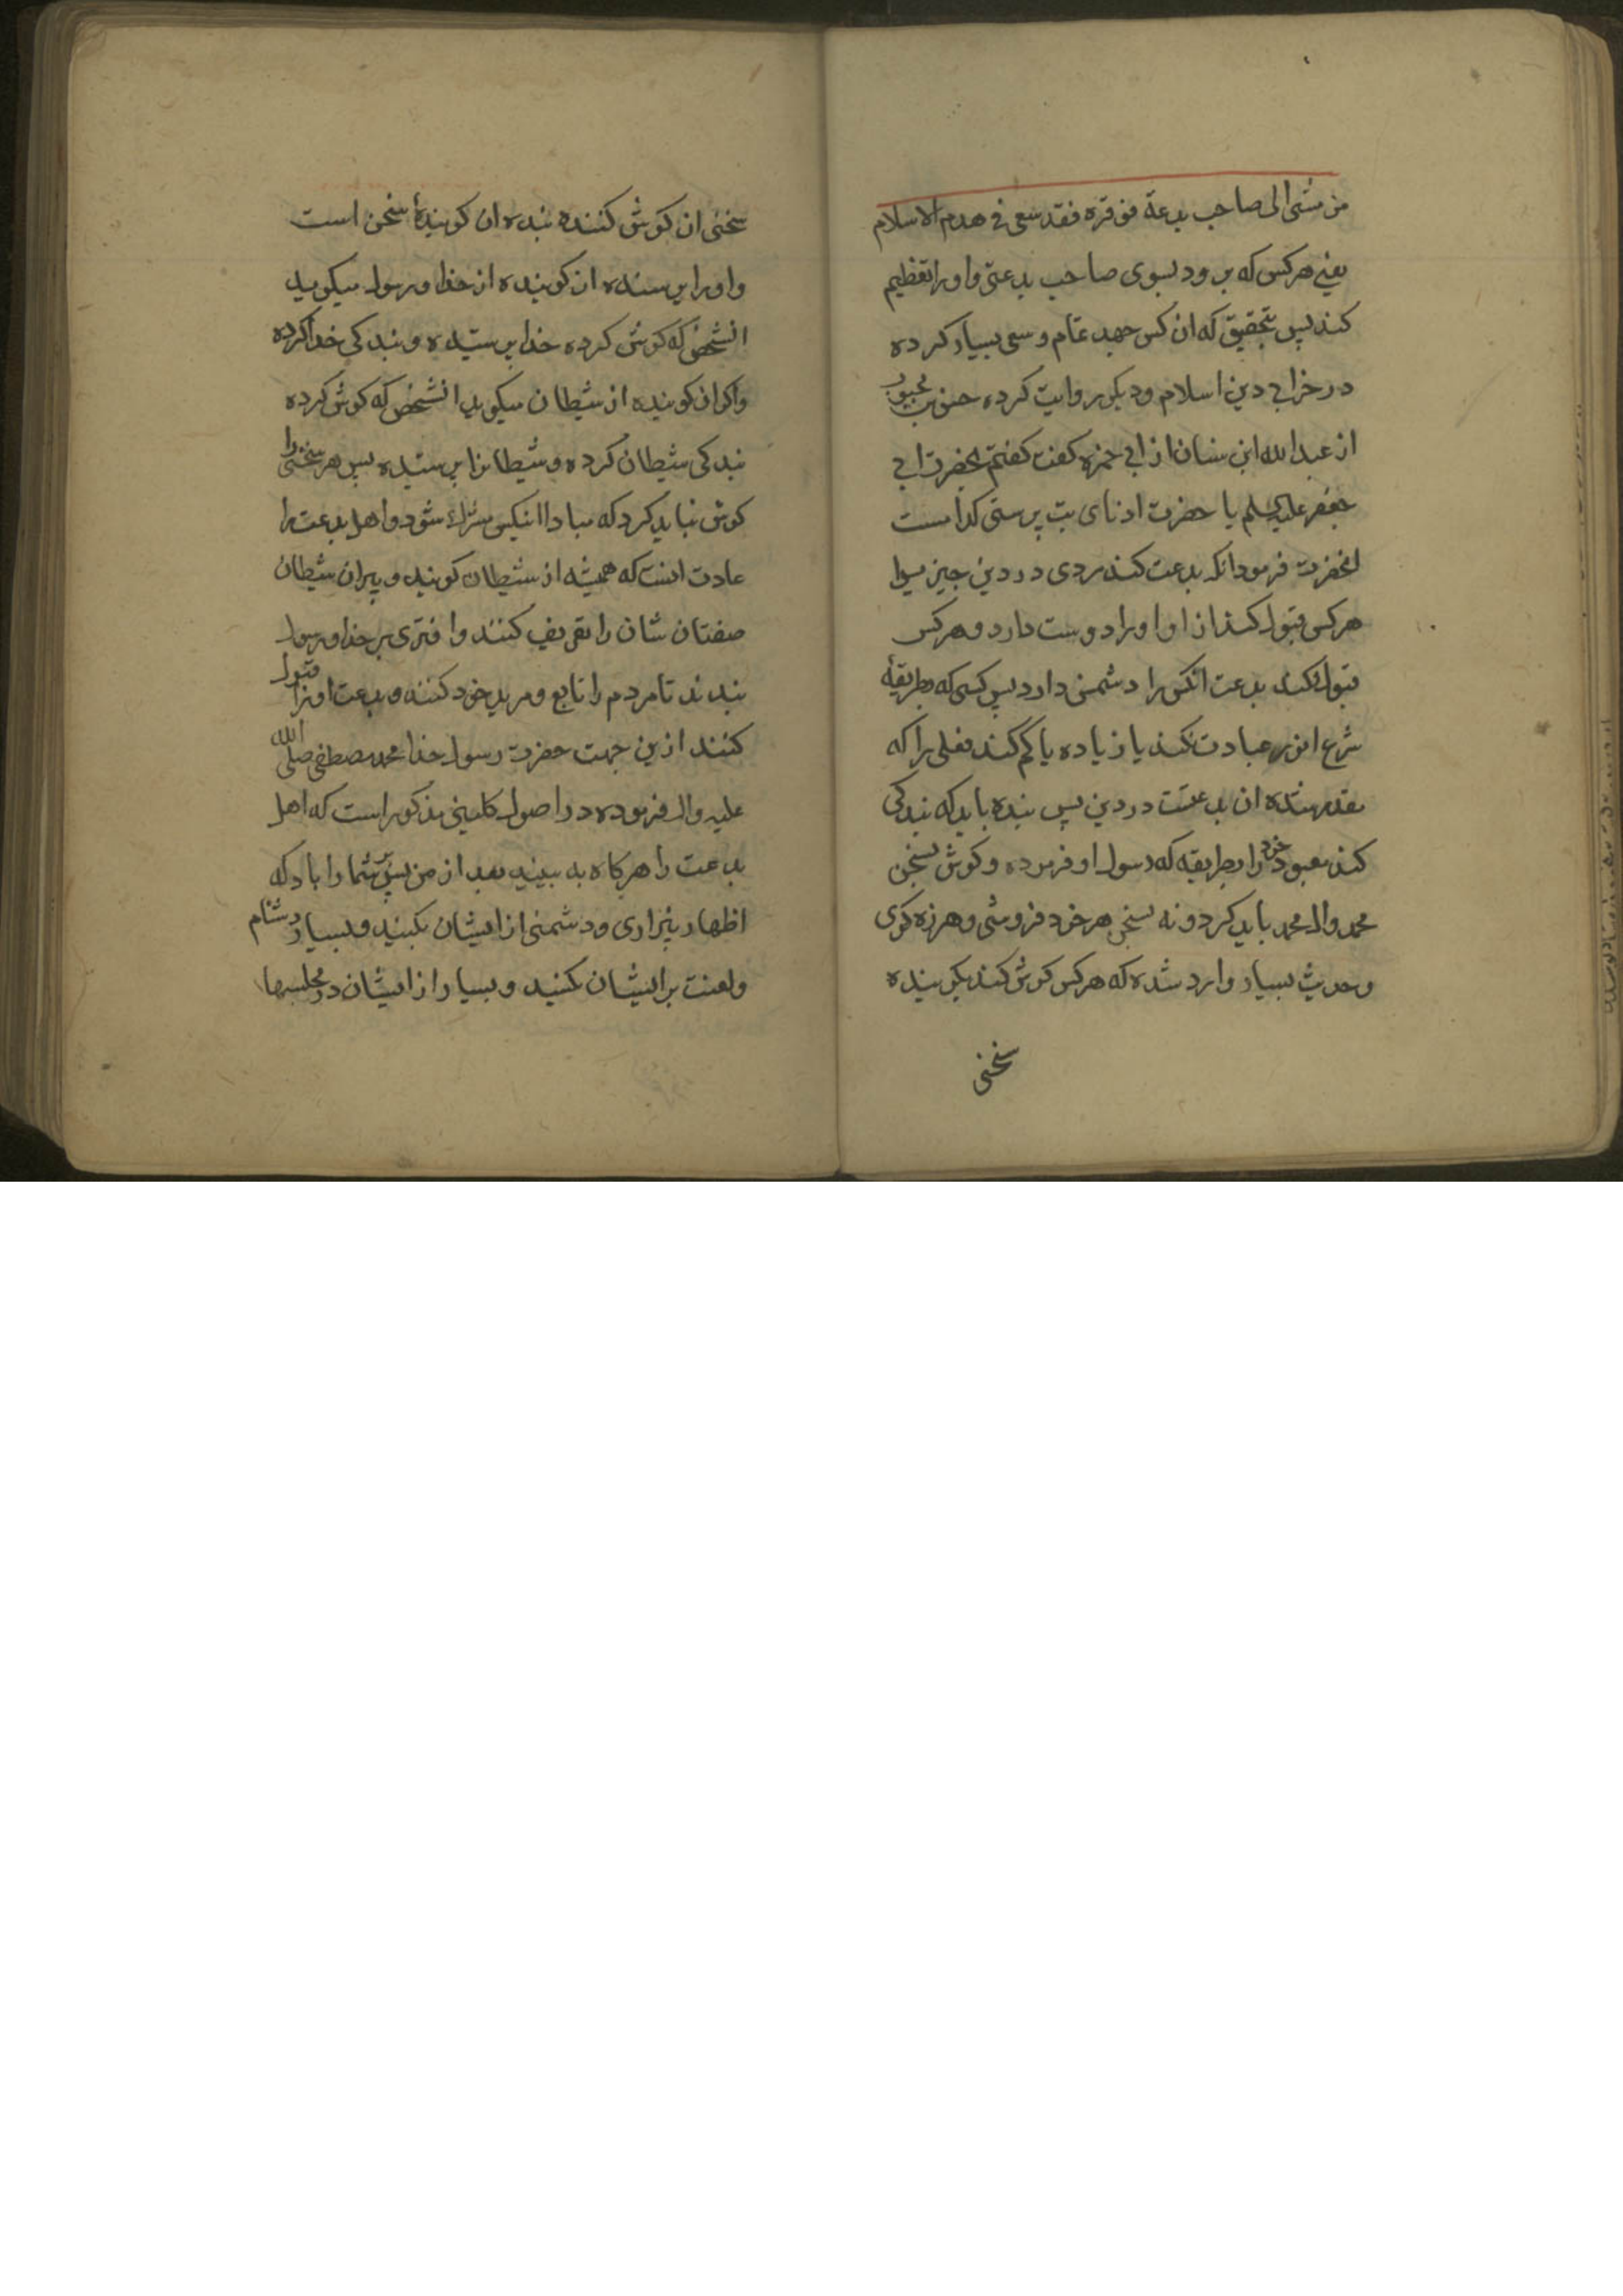 من مشی الی صاحب بدعة فوقره فقد سعی فی هدم الاسلام
یعنی هرکس که برود بسوی صاحب بدعتی و اورا تعظیم
کند پس بتحقیق که ان کس جهد تمام و سعی بسیار کرده
در خرابی دین اسلام و دیکر روایت کرده حسن بن محبوب
از عبدالله ابن سنان از ابی حمزه کفت کفتم بحضرت ابی
جعفر علیه السلم یا حضرت ادنای بت پرستی کدامست
انحضرت فرمود انکه بدعت کند مردی در دین چیزیرا
هرکس قبول کند از او اورا دوست دارد و هرکس
قبول نکند بدعت انکس را دشمن دارد پس کسی که بطریقهٔ
شرع انور عبادت نکند یا زیاده یا کم کند فعلی را که
مقدر شده ان بدعتست در دین پس بنده باید که بندکی
کند معبود خود را بطریقه که رسول او فرموده و کوش بسخن
محمد وال محمد باید کرد و نه بسخن هر خود فروشی و هرزه کوی
و حدیث بسیار وارد شده که هرکس کوش کند بکوینده
سخنی
سخنی ان کوش کننده بنده ان کویندهٔ سخن است
و اورا پرسنده ان کوینده از خدا و رسول میکوید
انشخص که کوش کرده خدا پرستیده و بندکی خدا کرده
و اکر ان کوینده از شیطان میکوید انشخص که کوش کرده
بندکی شیطان کرده و شیطانرا پرستیده پس هر سخنی را
کوش نباید کرد که مبادا انکس مشرک شود و اهل بدعت را
عادت اینست که همیشه از شیطان کویند و پیران شیطان
صفتان شان را تعریف کنند و افتری بر خدا و رسول
بندند تا مردم را تابع و مرید خود کنند و بدعت اونرا قبول
کنند ازین جهت حضرت رسول خدا محمد مصطفی صلی الله
علیه واله فرموده در اصول کلینی مذکور است که اهل
بدعت را هرکاه به بینید بعد از من پس بر شما را باد که
اظهار بیزاری و دشمنی از ایشان بکنید و بسیار دشنام
و لعنت بر ایشان بکنید و بسیار از ایشان در مجلسها